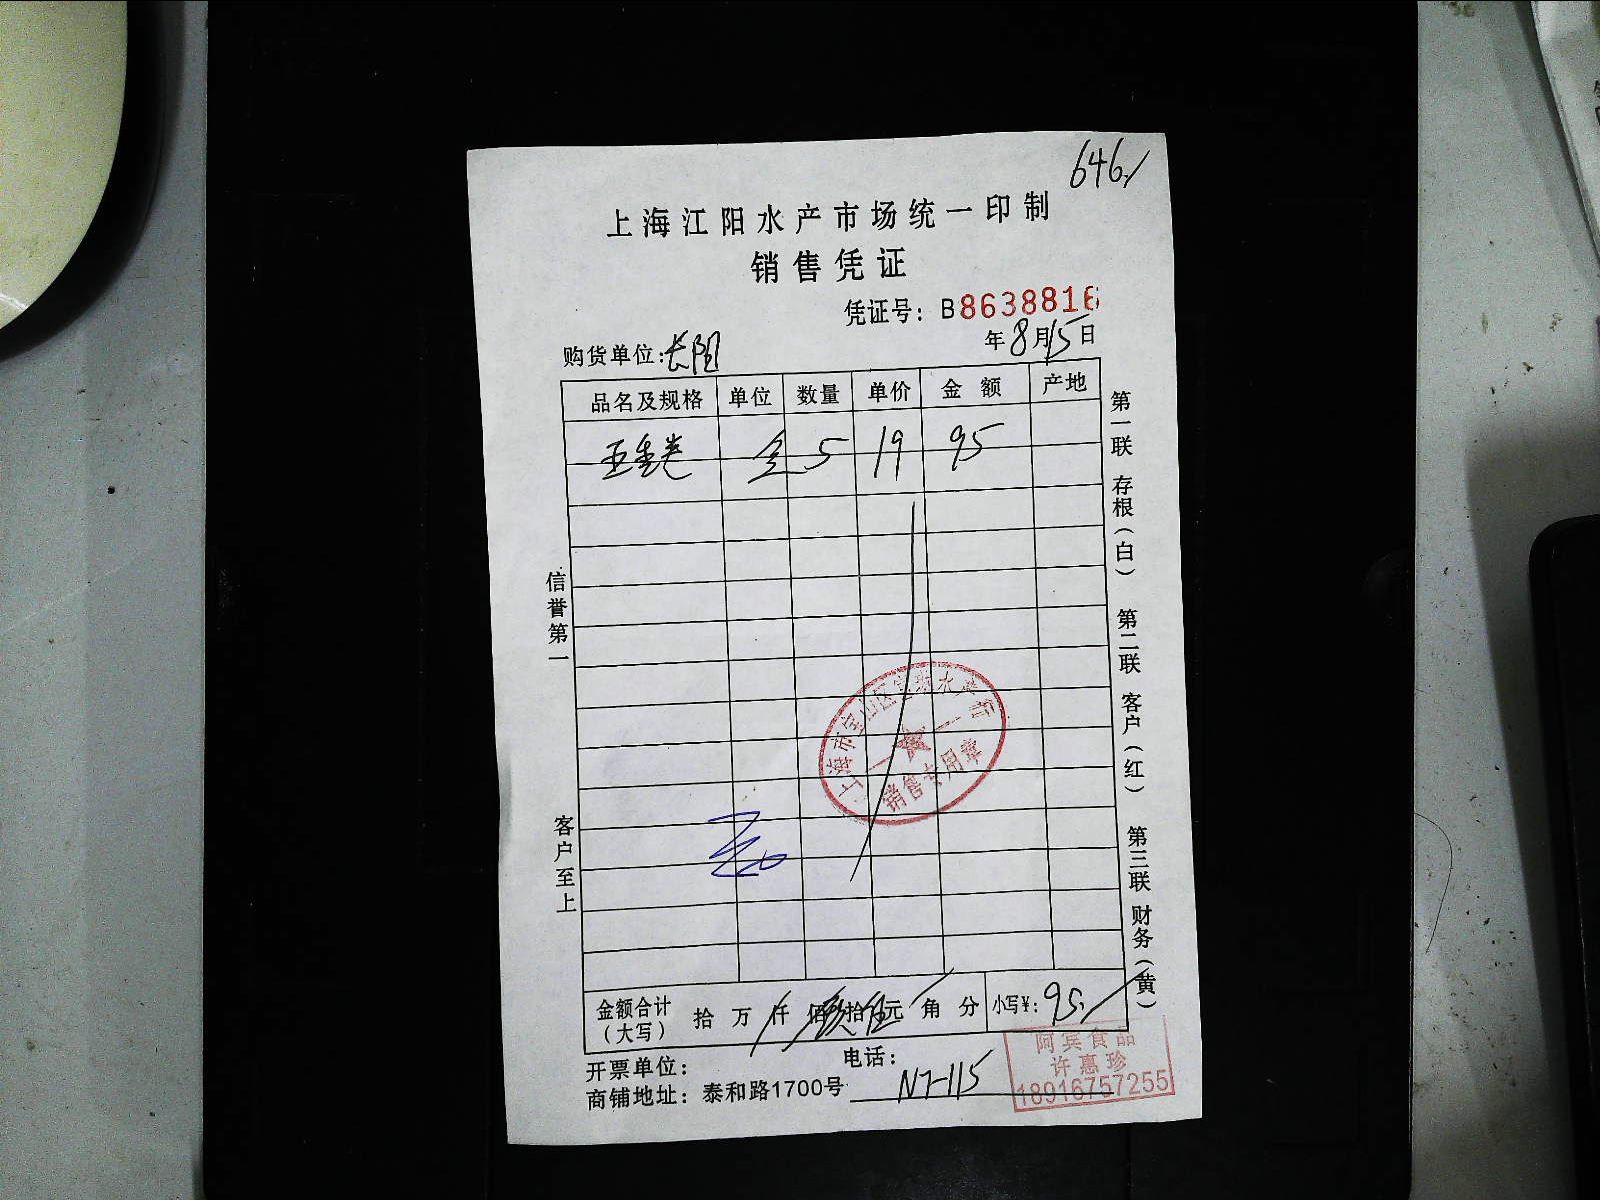 646
上海江阳水产市场统一印制
销售凭证
凭证号：B8638816
购货单位：长阳
年8月15日
品名及规格 单位 数量 单价 金额 产地
5 19 95
信誉第一
客户至上
第一联 存根（白） 第二联 客户（红） 第三联 财务（黄）
上海市宝山区 水产行
销售专用章
金额合计（大写） 拾 万 仟 佰 玖拾伍元 角 分 小写¥：95
开票单位： 电话：
商铺地址：泰和路1700号 N7-115
阿宾食品
许惠珍
18916757255